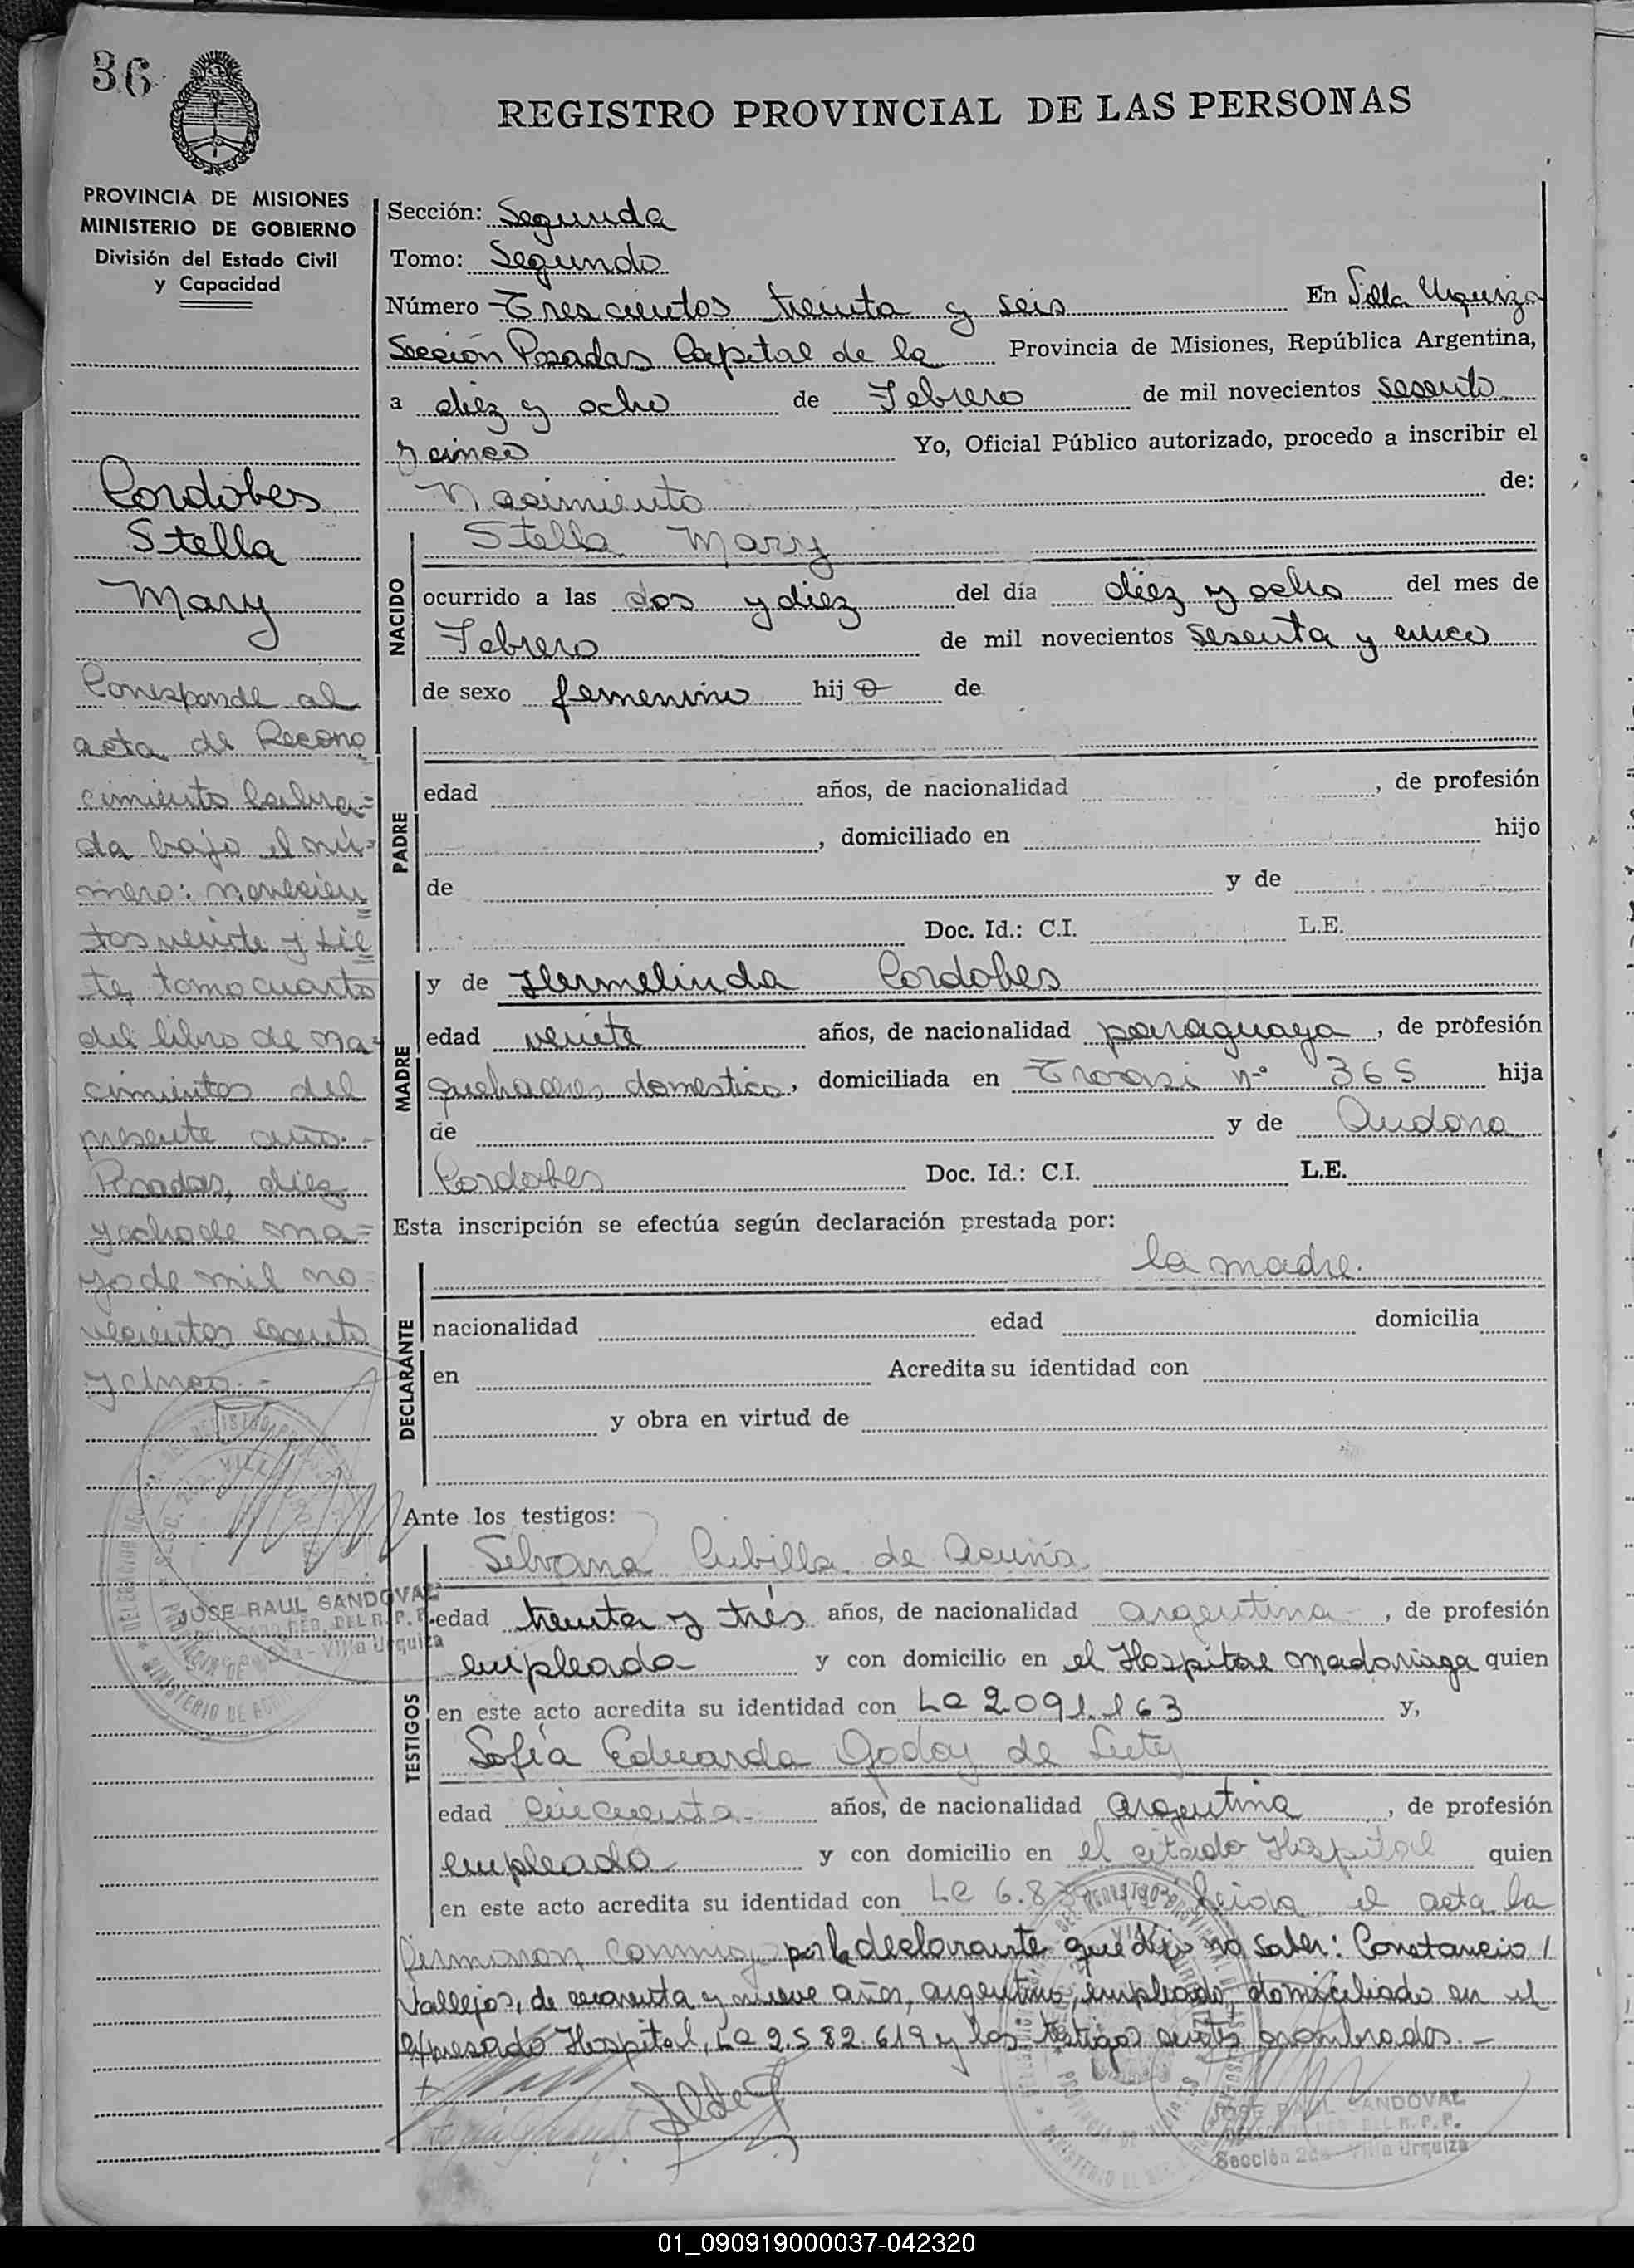 36
REGISTRO PROVINCIAL DE LAS PERSONAS
PROVINCIA DE MISIONES
MINISTERIO DE GOBIERNO
División del Estado Civil
y Capacidad
Cordobes
Stella
Mary
Corresponde al
acta de Recono
cimiento labra=
da bajo el nú=
mero: novecien
tos veinte y sie
te, tomo cuarto
del libro de na-
cimientos del
presente año.-
Posadas, diez
y ocho de ma=
yo de mil no
vecientos sesenta
y cinco.-
JOSE RAUL SANDOVAL
Villa Urquiza
Sección: Segunda
Tomo: Segundo
Número Trescientos treinta y seis En Villa Urquiza
Sección Posadas Capital de la Provincia de Misiones, República Argentina,
a diez y ocho de Febrero de mil novecientos sesenta
y cinco Yo, Oficial Público autorizado, procedo a inscribir el
Nacimiento de:
NACIDO
Stella Mary
ocurrido a las dos y diez del día diez y ocho del mes de
Febrero de mil novecientos sesenta y cinco
de sexo femenino hija de
PADRE
edad años, de nacionalidad , de profesión
, domiciliado en hijo
de y de
Doc. Id.: C.I. L.E.
MADRE
y de Hermelinda Cordobes
edad veinte años, de nacionalidad paraguaya, de profesión
quehaceres domestico, domiciliada en nº 365 hija
de y de
Cordobes Doc. Id.: C.I. L.E.
Esta inscripción se efectúa según declaración prestada por:
DECLARANTE
la madre.
nacionalidad edad domicilia
en Acredita su identidad con
y obra en virtud de
Ante los testigos:
TESTIGOS
Silvana Cubilla de Acuña
edad treinta y trés años, de nacionalidad argentina, de profesión
empleada y con domicilio en el Hospital Madariaga quien
en este acto acredita su identidad con LC 2.091.163 y,
Sofía Eduarda Godoy de
edad cincuenta años, de nacionalidad argentina, de profesión
empleada y con domicilio en el citado Hospital quien
en este acto acredita su identidad con LC leida el acta la
firmaron conmigo por la declarante que dijo no saber: Constancio
Vallejos, de cuarenta y nueve años, argentino, empleado, domiciliado en el
expresado Hospital, LE 2.582.619 y los testigos antes nombrados.-
JOSE RAUL SANDOVAL
Sección 2da - Villa Urquiza
01_090919000037-042320